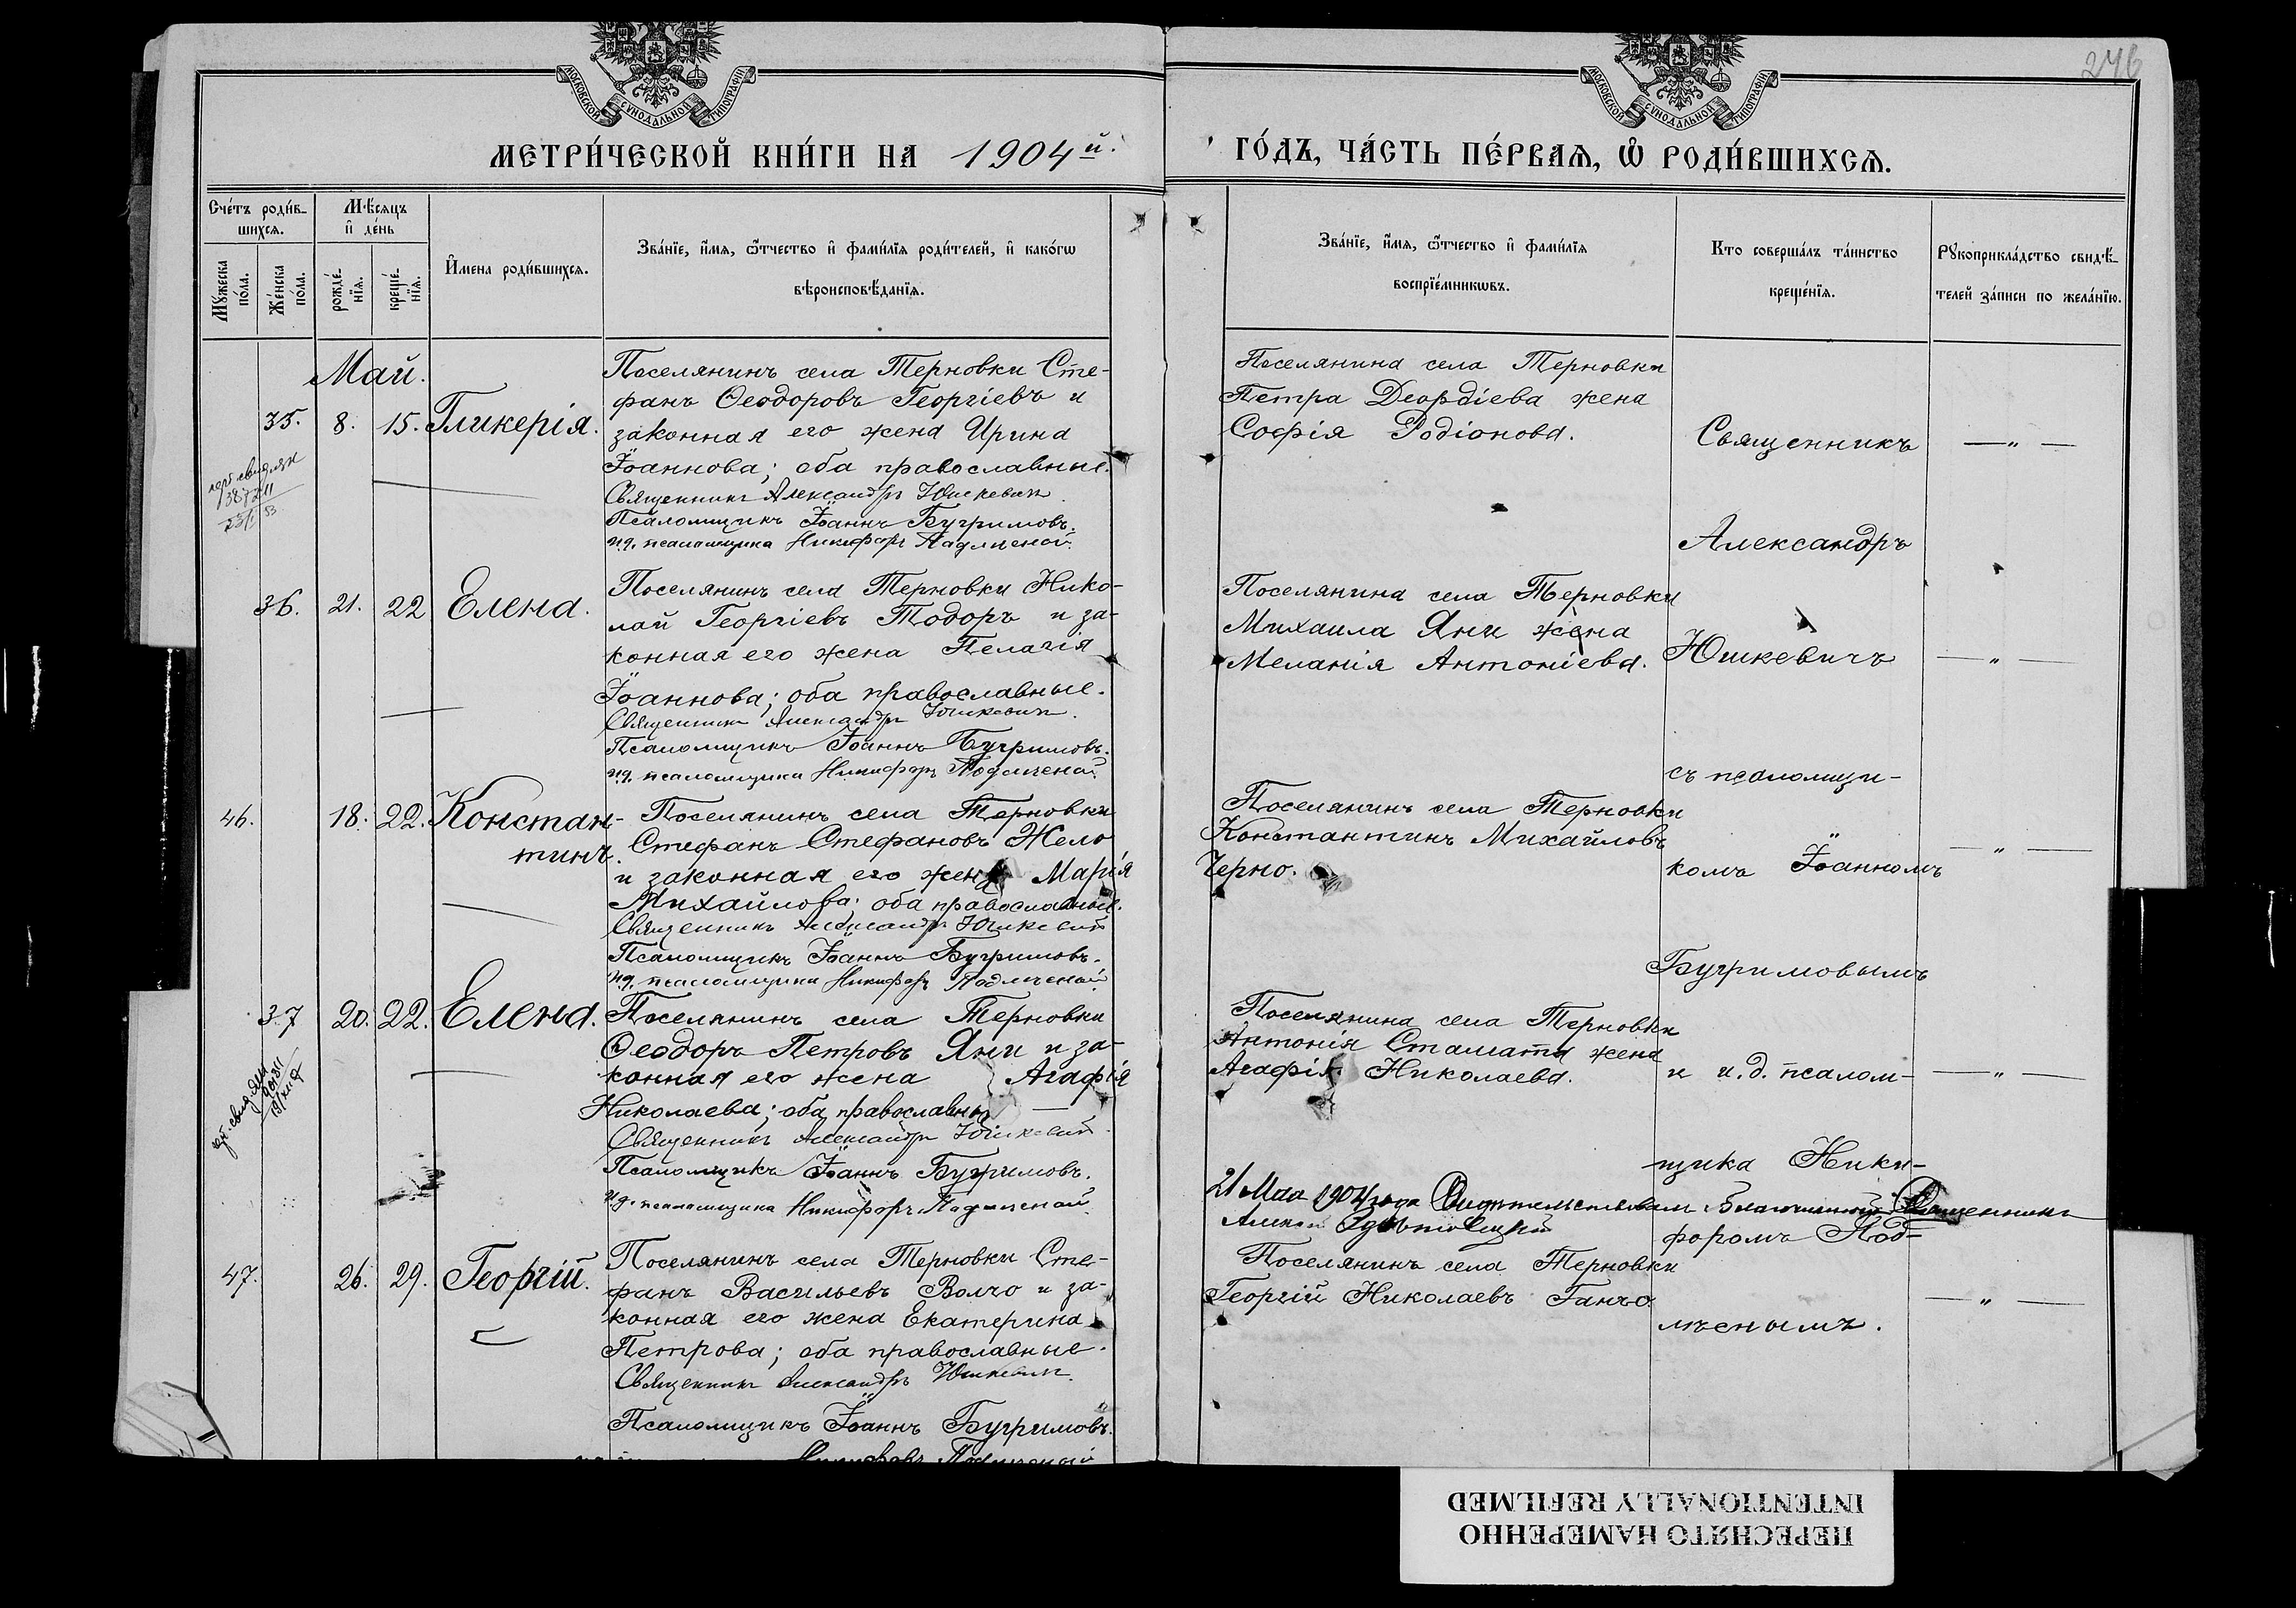 246
МОСКОВСКОЙ СѴНОДАЛЬНОЙ ТИПОГРАФІИ
МОСКОВСКОЙ СѴНОДАЛЬНОЙ ТИПОГРАФІИ
МЕТРИ́ЧЕСКОЙ КНИ́ГИ НА 1904й.
ГО́ДЪ, ЧА́СТЬ ПЕ́РВАѦ, Ѽ РОДИ́ВШИХСѦ.
Сче́тъ роди́в-
шихсѧ.
Мꙋ́жеска
по́ла.
Же́нска
по́ла.
Мѣ́сѧцъ
и҆ де́нь
рожде́-
нїѧ.
креще́-
нїѧ.
И҆мена роди́вшихсѧ.
Зва́нїе, и҆́мѧ, ѻ҆́тчество и҆ фами́лїѧ роди́телей, и҆ како́гѡ
вѣроисповѣ́данїѧ.
Зва́нїе, и҆́мѧ, ѻ҆́тчество и҆ фами́лїѧ
воспрїе́мникѡвъ.
Кто соверша́лъ та́инство
креще́нїѧ.
Рꙋкоприкла́дство свидѣ́-
телей за́писи по жела́нїю.
Май.
35. 8. 15. Гликерія.
Поселянинъ села Терновки Сте-
фанъ Ѳеодоровъ Георгіевъ и
законная его жена Ирина
Іоаннова; оба православные.
Священникъ Александръ Юшкевич
Псаломщикъ Іоаннъ Бугримовъ.
и.д. псаломщика Никифоръ Подлѣсной.
Поселянина села Терновки
Петра Деордіева жена
Софія Родіонова.
Священникъ
— „ —
Александръ
36. 21. 22 Елена.
Поселянинъ села Терновки Нико-
лай Георгіевъ Тодоръ и за-
конная его жена Пелагія
Іоаннова; оба православные.
Священник Александръ Юшкевич.
Псаломщикъ Іоаннъ Бугримовъ.
и.д. псаломщика Никифоръ Подлѣсной
Поселянина села Терновки
Михаила Яни жена
Меланія Антоніева.
Юшкевичъ
— „ —
съ псаломщи-
46. 18. 22. Констан-
тинъ.
Поселянинъ села Терновки
Стефанъ Стефановъ Жело
и законная его жена Марія
Михайлова; оба православные.
Священникъ Александръ Юшкевич
Псаломщикъ Іоаннъ Бугримовъ.
и.д. псаломщика Никифоръ Подлѣсной
Поселянинъ села Терновки
Константинъ Михайловъ
Черно.
— „ —
комъ Іоанномъ
Бугримовымъ
37 20. 22. Елена.
Поселянинъ села Терновки
Ѳеодоръ Петровъ Яни и за-
конная его жена Агафія
Николаева; оба православны
Священникъ Александръ Юшкевич
Псаломщикъ Іоаннъ Бугримовъ.
и.д. псаломщика Никифоръ Подлѣсной
Поселянина села Терновки
Антонія Стамата жена
Агафія Николаева.
и и.д. псалом-
— „ —
щика Ники-
21 Мая 1904 года Священникъ
форомъ Под-
47. 26. 29. Георгій.
Поселянинъ села Терновки Сте-
фанъ Васильевъ Волчо и за-
конная его жена Екатерина
Петрова; оба православные.
Священникъ Александръ Юшкевич.
Псаломщикъ Іоаннъ Бугримовъ.
Поселянинъ села Терновки
Георгій Николаевъ Ганчо
— „ —
лѣснымъ.
ПЕРЕСНЯТО НАМЕРЕННО
INTENTIONALLY REFILMED